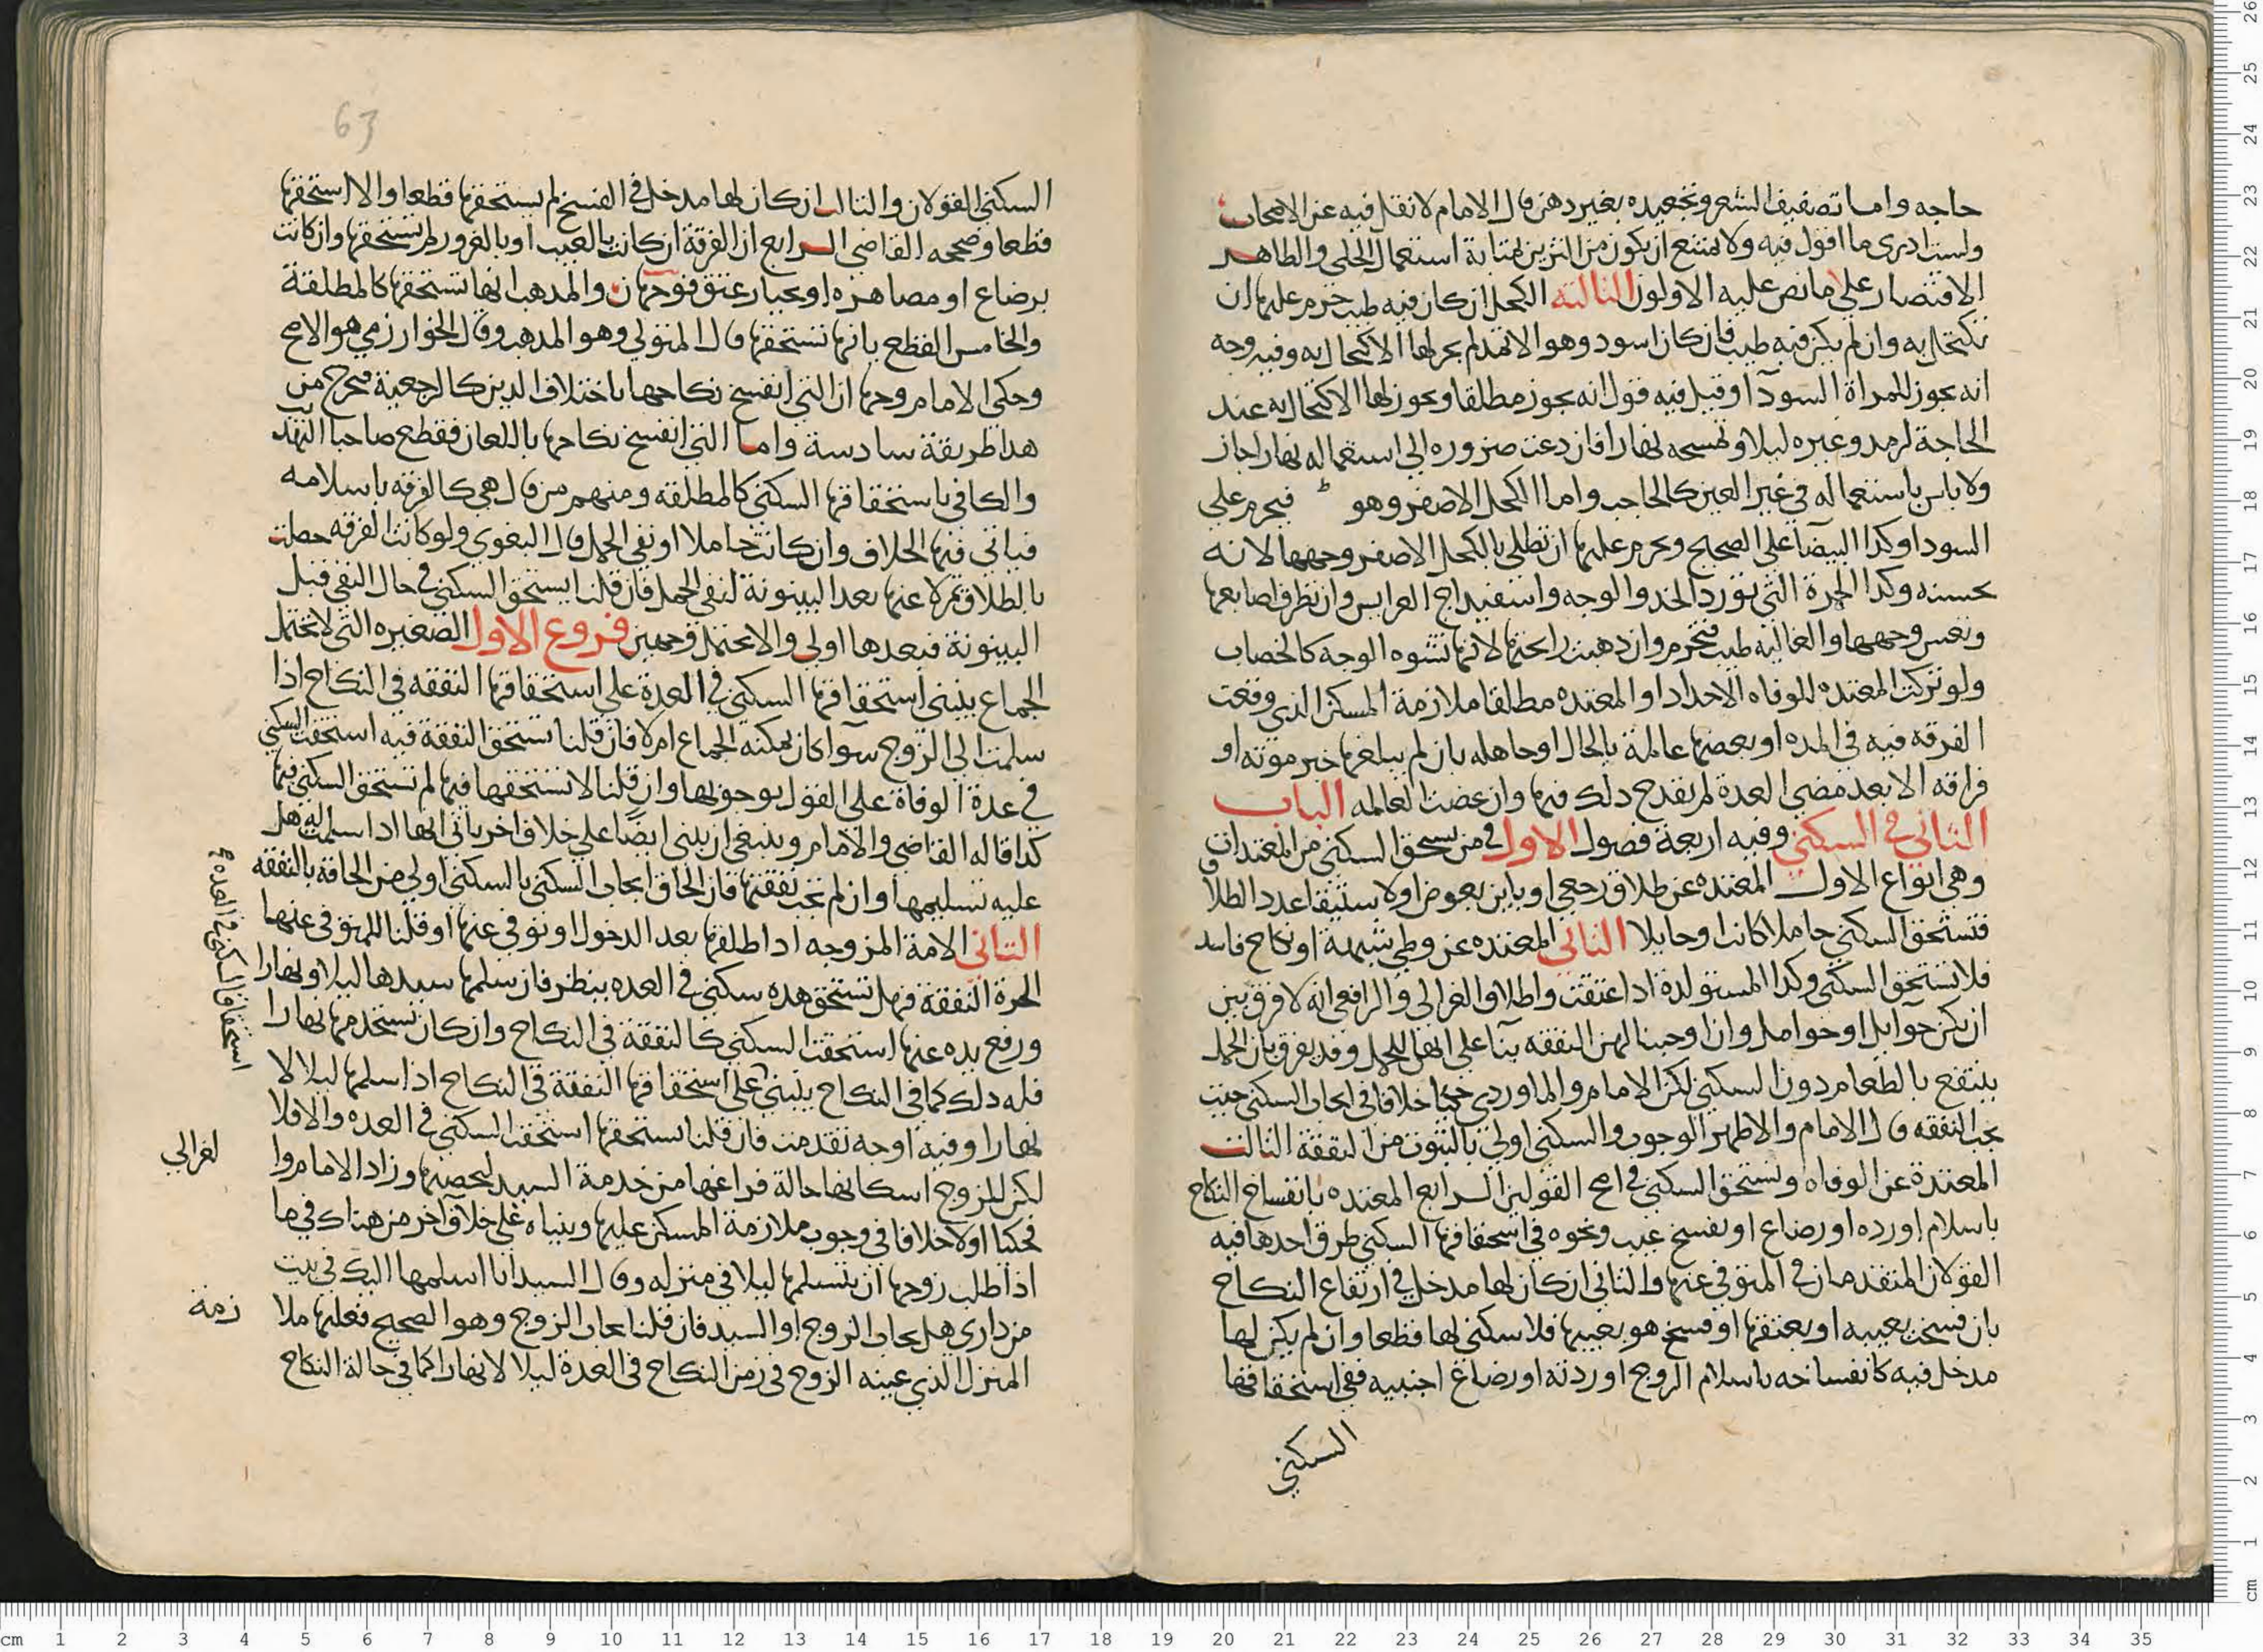 حاجه واما تصفيف الشعر وتجعيده بغير دهن قال الامام لا نقل فيه عن الاصحاب
ولست ادرى ما اقول فيه ولا يمتنع ان يكون من التزين بمثابة استعمال الحلي والظاهر
الاقتصار على ما نص عليه الاولون الثالثه الكحل ان كان فيه طيب حرم عليها ان
تكتحل به وان لم يكن فيه طيب فان كان اسود وهو الاثمد لم يجز لها الاكتحال به وفيه وجه
انه يجوز للمراة السودآ وقيل فيه قول انه يجوز مطلقا ويجوز لها الاكتحال به عند
الحاجة لرمد وغيره ليلا وتمسحه نهارا فان دعت ضروره الى استعماله نهارا جاز
ولا باس باستعماله في غير العين كالحاجب واما الكحل الاصفر وهو فيحرم على
السودا وكذا البيضآ على الصحيح ويحرم عليها ان تطلى بالكحل الاصفر وجهها لانه
يحسنه وكذا الحمرة التي تورد الخد والوجه واسفيداج العرايس وان تطرف اصابعها
وجهها والغاليه طيب فتحرم وان ذهبت رايحتها لانها تشوه الوجه كالخضاب
ولو تركت المعتده للوفاه الاحداد او المعتده مطلقا ملازمة المسكن الذي وقعت
الفرقه فيه في المده او بعضها عالمة بالحال او جاهله بان لم يبلغها خبر موته او
فراقه الا بعد مضي العدة لم يقدح ذلك فيها وان عصت العالمه الباب
الثاني في السكنى وفيه اربعة فصول الاول في من يستحق السكنى من المعتدات
وهي انواع الاول المعتده عن طلاق رجعي او باين بعوض او لاستيفا عدد الطلاق
فتستحق السكنى حاملا كانت او حايلا الثاني المعتده عن وطي شبهة او نكاح فاسد
فلا تستحق السكنى وكذا المستولدة اذا عتقت واطلاق الغزالي والرافعي انه لا فرق بين
ان يكن حوآيل او حوامل وان اوجبنا لهن النفقه بنآ على انها للحمل وقد يفرق بان الحمل
ينتفع بالطعام دون السكنى لكن الامام والماوردي حكيا خلافا في ايجاب السكنى حيث
تجب النفقه قال الامام والاظهر الوجوب والسكنى اولى بالثبوت من النفقة الثالث
المعتدة عن الوفاه وتستحق السكنى في اصح القولين الرابع المعتده بانفساخ النكاح
باسلام او رده او رضاع او بفسخ عيب ونحوه في استحقاقها السكنى طرق احدها فيه
القولان المتقدمان في المتوفى عنها والثاني ان كان لها مدخل في ارتفاع النكاح
بان فسخت بعيبه او بعتقها او فسخ هو بعيبها فلا سكنى لها قطعا وان لم يكن لها
مدخل فيه كانفساخه باسلام الزوج او ردته او رضاع اجنبيه ففي استحقاقها
السكنى
63
السكنى القولان والثالث ان كان لها مدخل في الفسخ لم يستحقها قطعا والا استحقتها
قطعا وصححه القاضي الرابع ان الفرقة ان كانت بالعيب او بالغرور لم تستحقها وان كانت
برضاع او مصاهره او بخيار عتق فوجهان والمذهب انها تستحقها كالمطلقة
والخامس القطع بانها تستحقها قال المتولي وهو المذهب وقال الخوارزمي هو الاصح
وحكى الامام وجها ان التي انفسخ نكاحها باختلاف الدين كالرجعية فخرج من
هذا طريقة سادسة واما التي انفسخ نكاحها باللعان فقطع صاحبا التهذيب
والكافي باستحقاقها السكنى كالمطلقه ومنهم من قال هي كالفرقه باسلامه
فياتي فيها الخلاف وان كانت حاملا او نفى الحمل قال البغوي ولو كانت الفرقه حصلت
بالطلاق ثم لاعنها بعد البينونة لنفي الحمل فان قلنا يستحق السكنى في حال النفي قبل
البينونة فبعدها اولى والا يحتمل وجهين فروع الاول الصغيره التي لا تحتمل
الجماع ينبني استحقاقها السكنى في العدة على استحقاقها النفقه في النكاح اذا
سلمت الى الزوج سوآ كان يمكنه الجماع ام لا فان قلنا تستحق النفقة فيه استحقت السكنى
في عدة الوفاة على القول بوجوبها وان قلنا لا تستحقها فيها لم تستحق السكنى فيها
كذا قاله القاضي والامام وينبغي ان يبنى ايضًا على خلاف اخر ياتي انها اذا سلمت اليه هل
عليه تسليمها وان لم تجب نفقتها فان الحاق ايجاب السكنى بالسكنى اولى من الحاقه بالنفقه
الثاني الامة المزوجه اذا طلقها بعد الدخول او توفي عنها او قلنا للمتوفى عنها
الحرة النفقة فهل تستحق هذه سكنى في العده ينظر فان سلمها سيدها ليلا ونهارا
ورفع يده عنها استحقت السكنى كالنفقة في النكاح وان كان تستخدمها نهارا
فله ذلك كما في النكاح ينبني على استحقاقها النفقة في النكاح اذا سلمها ليلا لا
نهارا وفيه اوجه تقدمت فان قلنا تستحقها استحقت السكنى في العده والا فلا
لكن للزوج اسكانها حالة فراغها من خدمة السيد ليحصنها وزاد الامام وا
فحكيا اولا خلافا في وجوب ملازمة المسكن عليها وبنياه على خلاف آخر من هناك فيما
اذا طلب زوجها ان يتسلمها ليلا في منزله وقال السيد انا اسلمها اليك في بيت
من داري هل يجاب الزوج او السيد فان قلنا يجاب الزوج وهو الصحيح فعليها ملا
المنزل الذي عينه الزوج في زمن النكاح في العدة ليلا لا نهارا كما في حالة النكاح
استحقاق السكنى في العده
لغزالي
زمة